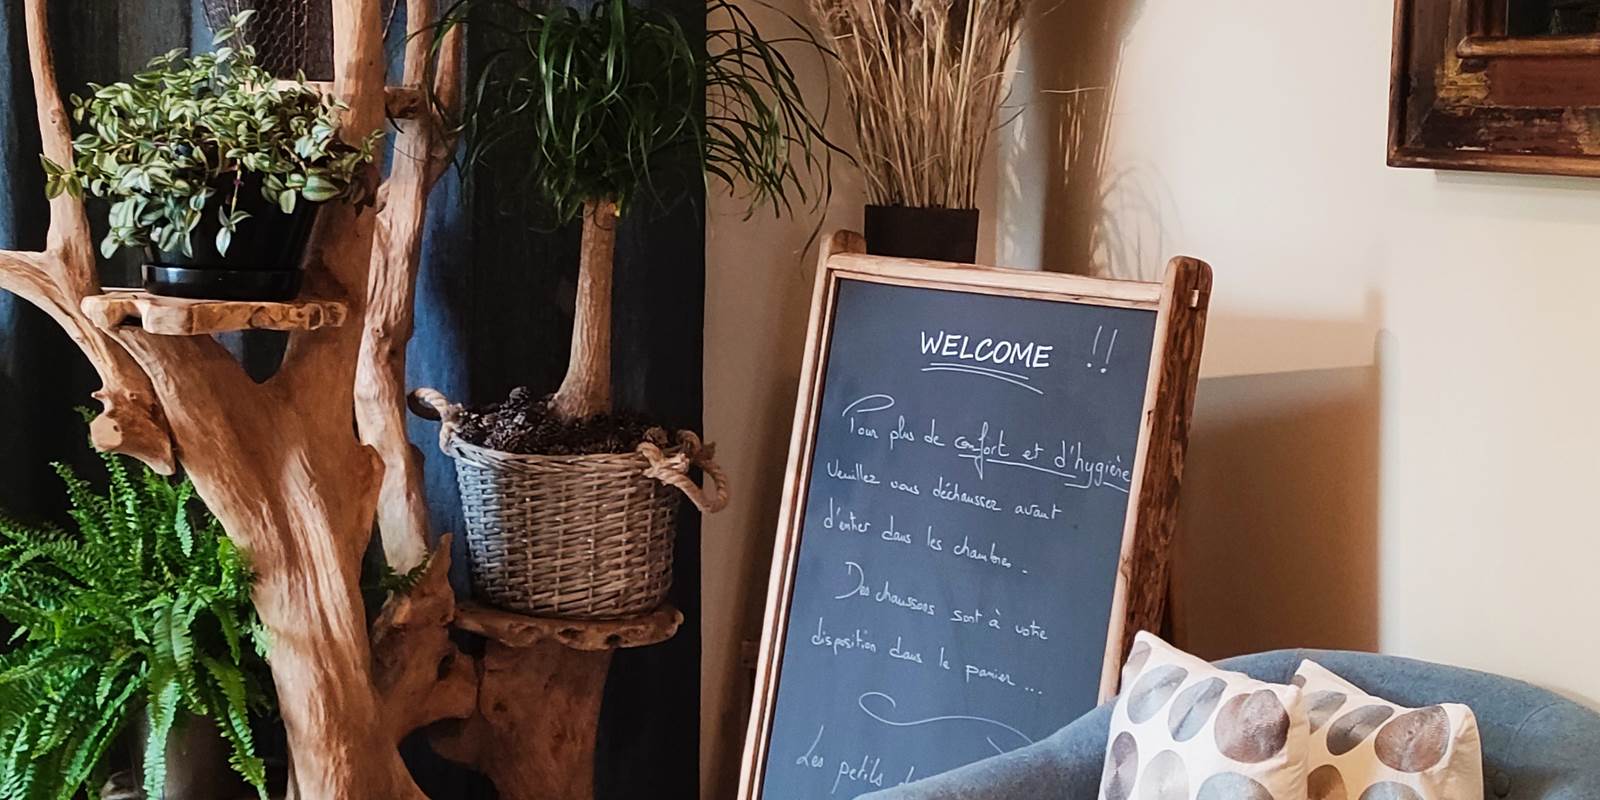 WELCOME !!
Pour plus de confort et d'hygiène
Veuillez vous déchaussez avant
d'entrer dans les chambres.
Des chaussons sont à votre
disposition dans le panier ...
Les petits